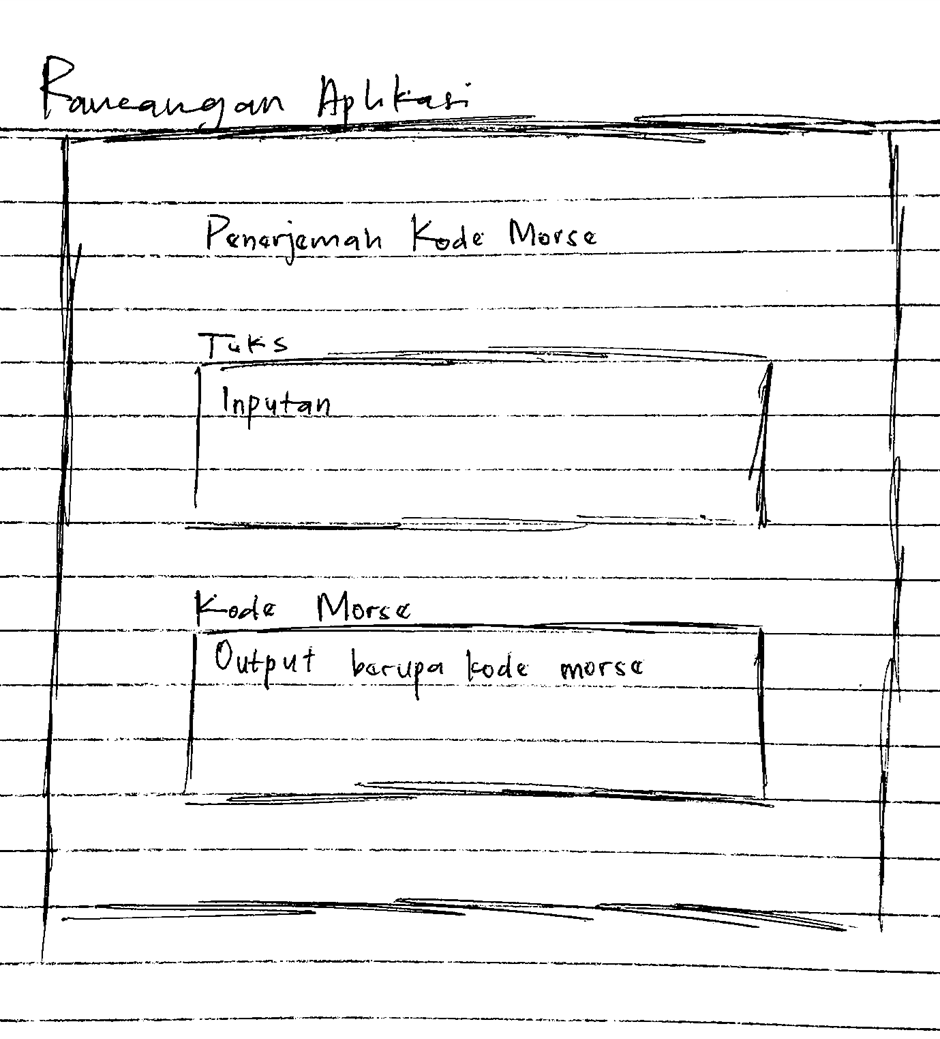 Rancangan Aplikasi
Penerjemah Kode Morse
Teks
Inputan
Kode Morse
Output berupa kode morse